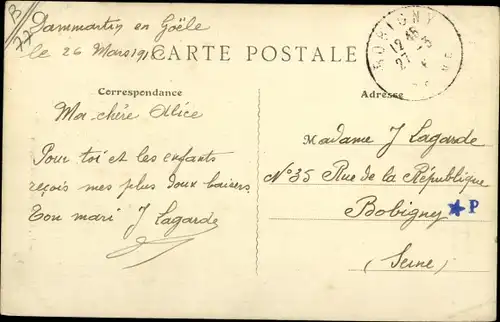 B/
77
Dammartin en Goële
le 26 Mars 191
CARTE POSTALE
BOBIGNY
12 45
27 -3
Correspondance
Adresse
Ma chère Alice
Pour toi et les enfants
reçois mes plus doux baisers
Ton mari J Lagarde
Madame J Lagarde
N° 35 Rue de la République
Bobigny
P
(Seine)